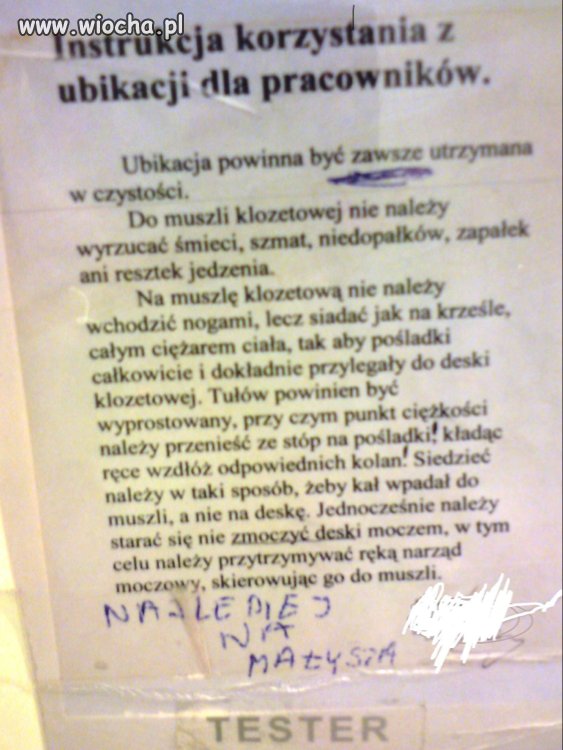 www.wiocha.pl
Instrukcja korzystania z
ubikacji dla pracowników.
Ubikacja powinna być zawsze utrzymana
w czystości.
Do muszli klozetowej nie należy
wyrzucać śmieci, szmat, niedopałków, zapałek
ani resztek jedzenia.
Na muszlę klozetową nie należy
wchodzić nogami, lecz siadać jak na krześle,
całym ciężarem ciała, tak aby pośladki
całkowicie i dokładnie przylegały do deski
klozetowej. Tułów powinien być
wyprostowany, przy czym punkt ciężkości
należy przenieść ze stóp na pośladki! kładąc
ręce wzdłóż odpowiednich kolan! Siedzieć
należy w taki sposób, żeby kał wpadał do
muszli, a nie na deskę. Jednocześnie należy
starać się nie zmoczyć deski moczem, w tym
celu należy przytrzymywać ręką narząd
moczowy, skierowując go do muszli.
NAJLEPIEJ
NA
MAŁYSZA
TESTER